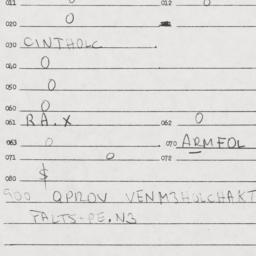 011 0 012 0
020 0
030 CINTHOLC
040 0
050 0
060 0
061 RA.X 062 0
063 0 070 ARMFOL
071 0 072
080 $
900 QPROV VENM3HOLCHAKT
FALTS-PE.N3